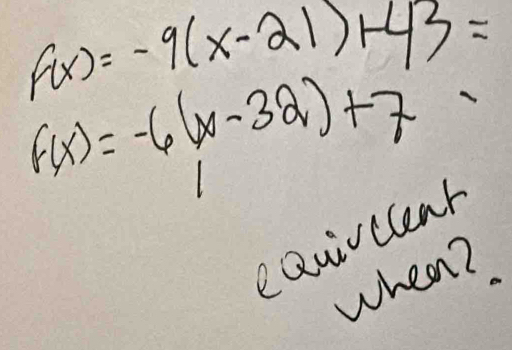 f(x) = -9(x-21)+43 =
f(x) = -6(x-32)+7
equivelent
when?